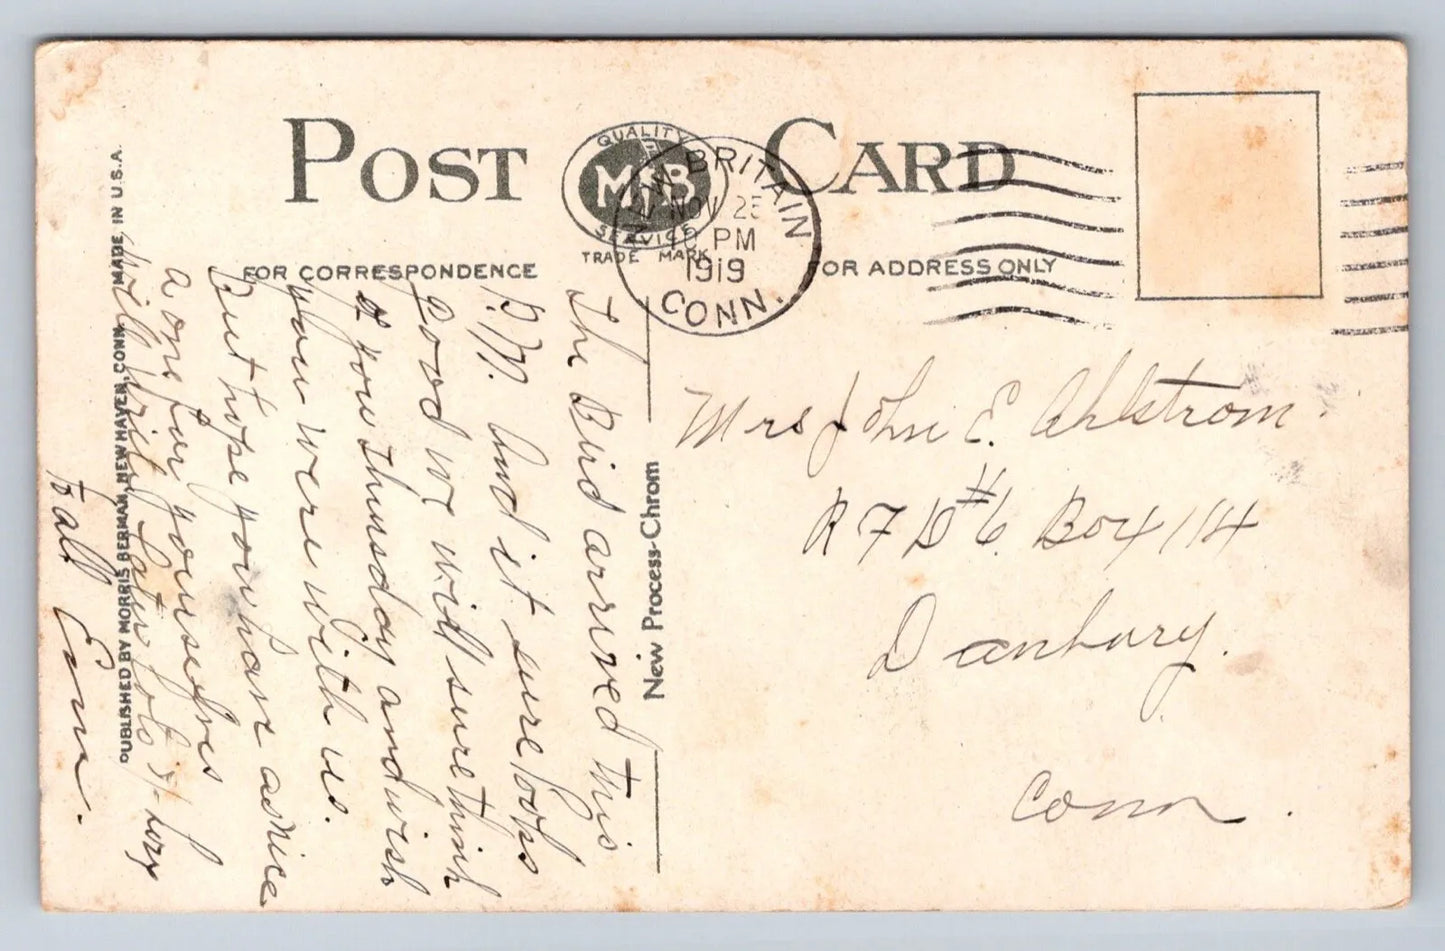 POST CARD
QUALITY
M B
SERVICE
TRADE MARK
NEW BRITAIN
NOV 25
10 PM
1919
CONN.
FOR CORRESPONDENCE
FOR ADDRESS ONLY
The Bird arrived this
P.M. and it sure looks
good we will sure think
of you Thursday and wish
you were with us.
But hope you have as nice
a one for yourselves
will write later lots of love
to all Emma.
Mrs John E. Ahlstrom
R F D #6. Box 114
Danbury.
Conn.
New Process-Chrom
PUBLISHED BY MORRIS BERMAN, NEW HAVEN, CONN. MADE IN U.S.A.